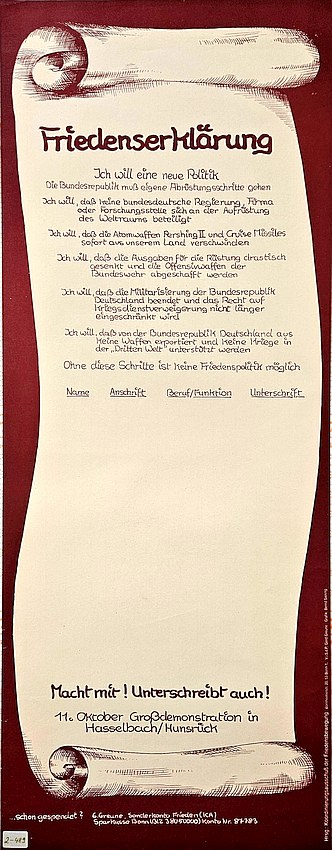 Friedenserklärung
Ich will eine neue Politik
Die Bundesrepublik muß eigene Abrüstungsschritte gehen
Ich will, daß keine bundesdeutsche Regierung, Firma
oder Forschungsstelle sich an der Aufrüstung
des Weltraums beteiligt
Ich will, daß die Atomwaffen Pershing II und Cruise Missiles
sofort aus unserem Land verschwinden
Ich will, daß die Ausgaben für die Rüstung drastisch
gesenkt und die Offensivwaffen der
Bundeswehr abgeschafft werden
Ich will, daß die Militarisierung der Bundesrepublik
Deutschland beendet und das Recht auf
Kriegsdienstverweigerung nicht länger
eingeschränkt wird
Ich will, daß von der Bundesrepublik Deutschland aus
keine Waffen exportiert und keine Kriege in
der „Dritten Welt" unterstützt werden
Ohne diese Schritte ist keine Friedenspolitik möglich
Name Anschrift Beruf/Funktion Unterschrift
Macht mit! Unterschreibt auch!
11. Oktober Großdemonstration in
Hasselbach/Hunsrück
...schon gespendet? G. Greune, Sonderkonto Frieden (KA)
Sparkasse Bonn (BLZ 38050000) Konto Nr. 87783
Hrsg.: Koordinierungsausschuß der Friedensbewegung
2-489